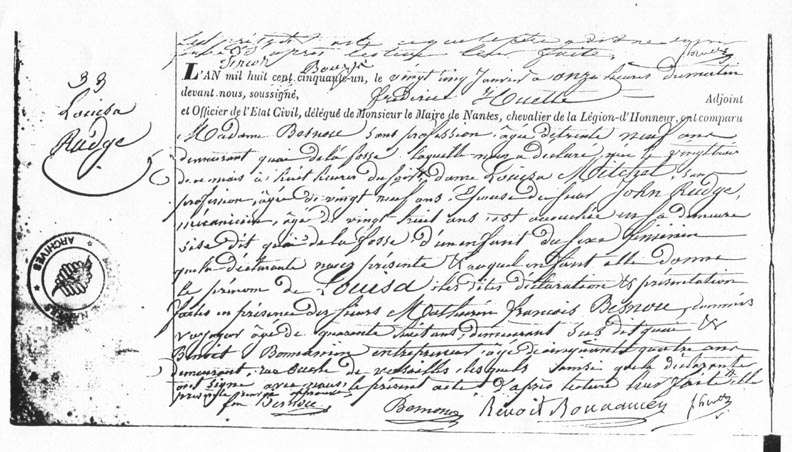 après lecture faite
33
Louisa
Rudge
L'AN mil huit cent cinquante-un, le vingt cinq Janvier à onze heures du matin
devant nous, soussigné, Frédéric Huette Adjoint
et Officier de l'Etat Civil, délégué de Monsieur le Maire de Nantes, chevalier de la Légion-d'Honneur, ont comparu
Madame Besnou sans profession, âgée de trente neuf ans
demeurant quai de la fosse, laquelle nous a déclaré, que le vingt trois
de ce mois à huit heures du soir, dame Louisa sans
profession, âgée de vingt neuf ans, Epouse du sieur John Rudge,
mécanicien, âgé de vingt huit ans, est accouchée en sa demeure
sise dit quai de la fosse, d'un enfant du sexe féminin
que la déclarante nous présente & auquel enfant elle donne
le prénom de Louisa, les dites déclaration & présentation
faites en présence des sieurs Mathurin François Besnou, commis
voyageur âgé de quarante huit ans, demeurant susdit quai &
Benoit Bonnamen entrepreneur, âgé de cinquante quatre ans
demeurant, rue de Versailles, lesquels ainsi que la déclarante
ont signé avec nous, le présent acte, d'après lecture leur faite
fm Besnou Besnou Benoit Bonnamen
ARCHIVES
NANTES